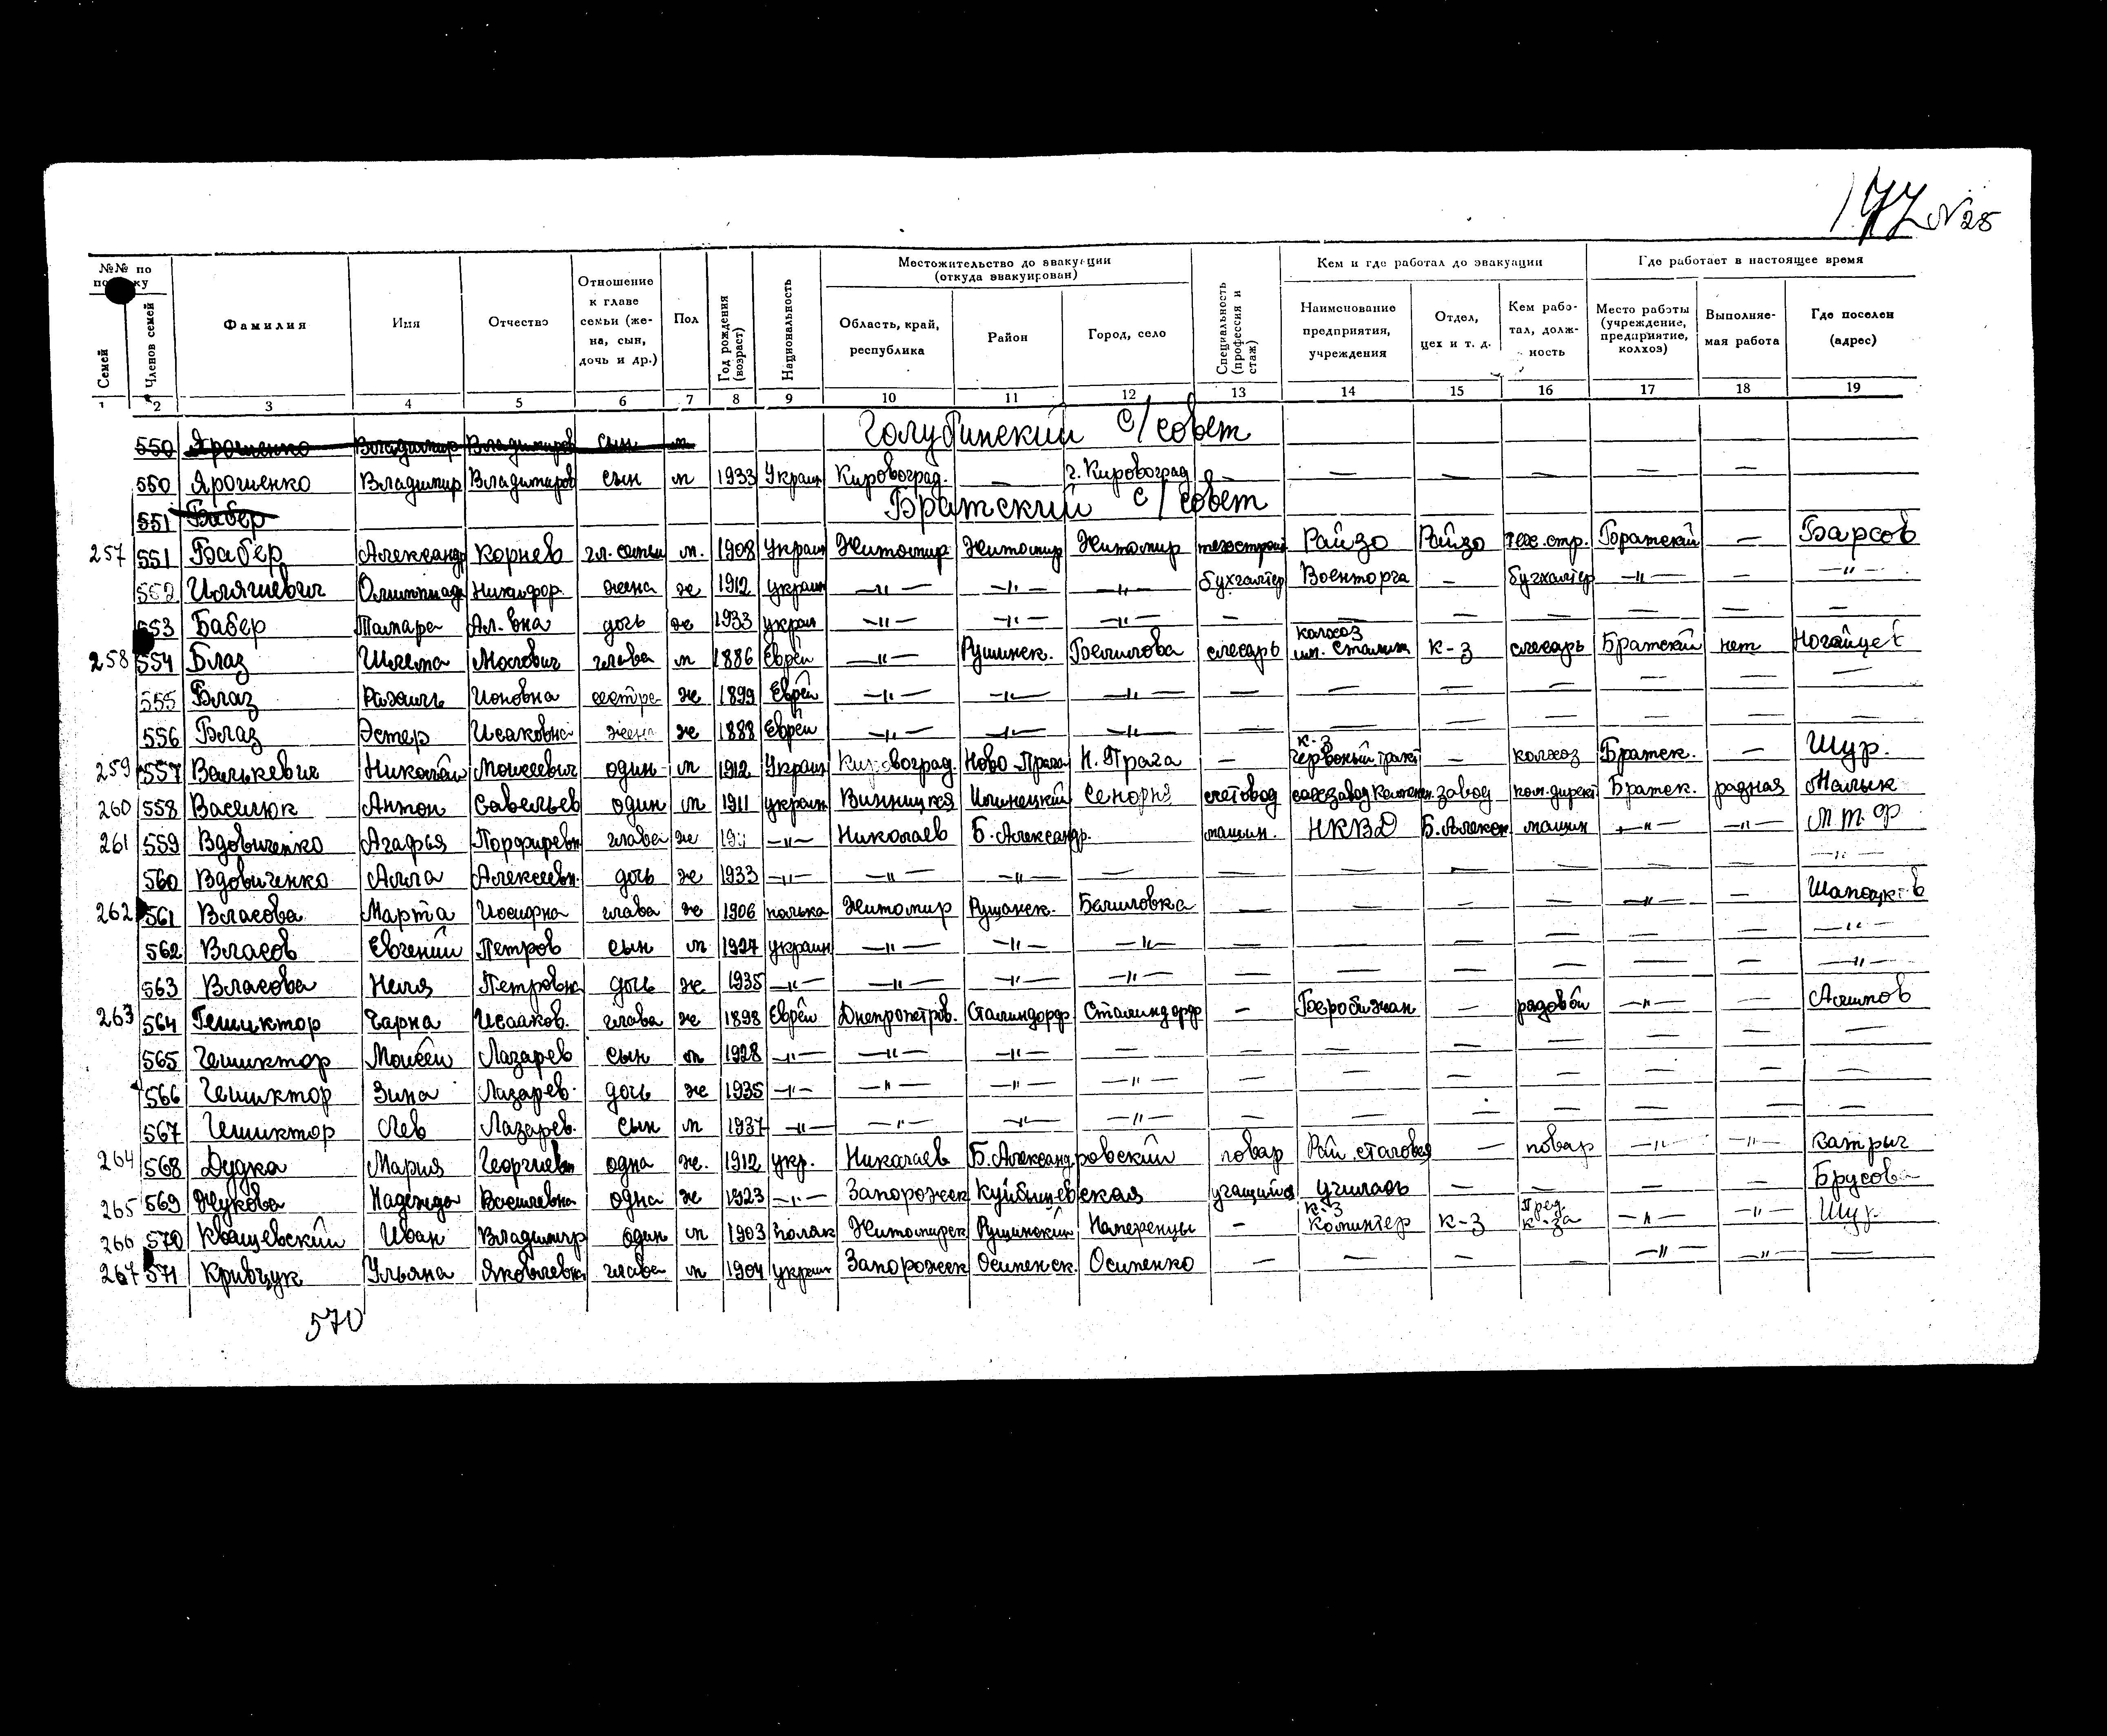 177 N 28
№№ по
Семей
Членов семей
Фамилия
Имя
Отчество
Отношение к главе семьи (жена, сын, дочь и др.)
Пол
Год рождения (возраст)
Национальность
Местожительство до эвакуции (откуда эвакуирован)
Область, край, республика
Район
Город, село
Специальность (профессия и стаж)
Кем и где работал до эвакуации
Наименование предприятия, учреждения
Отдел, цех и т. д.
Кем работал, должность
Где работает в настоящее время
Место работы (учреждение, предприятие, колхоз)
Выполняемая работа
Где поселен (адрес)
1 2 3 4 5 6 7 8 9 10 11 12 13 14 15 16 17 18 19
Голубинский с/совет
550 Ярошенко Владимир Владимиров сын м
550 Ярошенко Владимир Владимиров сын м 1933 Украин Кировоград. — г. Кировоград — — — — — —
Братский с/совет
551 Бабер
257 551 Бабер Александр Корнев гл. семьи м. 1908 украин Житомир Житомир Житомир Райзо Райзо тех. стр. Братский — Барсов
552 Олимпиада Никифор. жена ж 1912 украин —"— —"— —"— бухгалтер Военторга — бухгалтер —"— — —"—
553 Бабер Тамара Ал. вна дочь ж 1933 украин —"— —"— —"— — — — — — — —
258 554 Блаз Шлема Мосевич глава м 1886 Еврей —"— Ружинск. слесарь колхоз им. Сталина к-з слесарь Братский нет
555 Блаз Рахиль Ионовна сестра ж 1899 Еврей —"— —"— —"— — — — — — — —
556 Блаз Эстер Исаковна жена ж 1888 Еврей —"— —"— —"— — — — — — — —
259 557 Валькевич Николай Моисеевич один м 1912 Украин Кировоград. Ново-Прага Н. Прага — к-з — колхоз Братск. — Шур.
260 558 Василюк Антон Савельев один м 1911 украин Винницкя счетовод завод ком. директ Братск. Малык
261 559 Вдовиченко Агафья Порфиревн глава ж —"— Николаев Б. Александр. машин. НКВД Б. Алексан. машин —"— —"— М т. ф
560 Вдовиченко Алла Алексеевн. дочь ж 1933 —"— —"— —"— — — — — — — — —"—
262 561 Власова Марта Иосифна глава ж 1906 полька Житомир Ружинск. Белиловка — — — — —"— —
562 Власов Евгений Петров сын м 1927 украин —"— —"— —"— — — — — — — —"—
563 Власова Неля Петровна дочь ж 1935 —"— —"— —"— —"— — — — — — — —"—
263 564 Гешиктор Чарна Исааков. глава ж 1898 Еврей Днепропетров. Сталиндорф Сталиндорф — — рядовой —"— —
565 Гешиктор Моисей Лазарев сын м 1928 —"— —"— —"— — — — — — — — —
566 Гешиктор Зина Лазарев. дочь ж 1935 —"— —"— —"— —"— — — — — — — —
567 Гешиктор Лев Лазарев. сын м 1937 —"— —"— —"— —"— — — — — — — —
264 568 Дудка Мария Георгиевн одна ж. 1912 укр. Николаев Б. Александровский повар Рай. столовая — повар —"— —"—
265 569 Жукова Надежда Васильевна одна ж 1923 —"— Запорожск Куйбышевская учащийся училась — — — — Брусов
266 570 Кващевский Иван Владимир один м 1903 поляк Житомирск Ружинский — к-з Коминтер к-з Пред. к-за —"— —"— Шур
267 571 Кривцук Ульяна Яковлевна глава м 1904 украин Запорожск Осипенск. Осипенко — — — — —"— —"— —
570